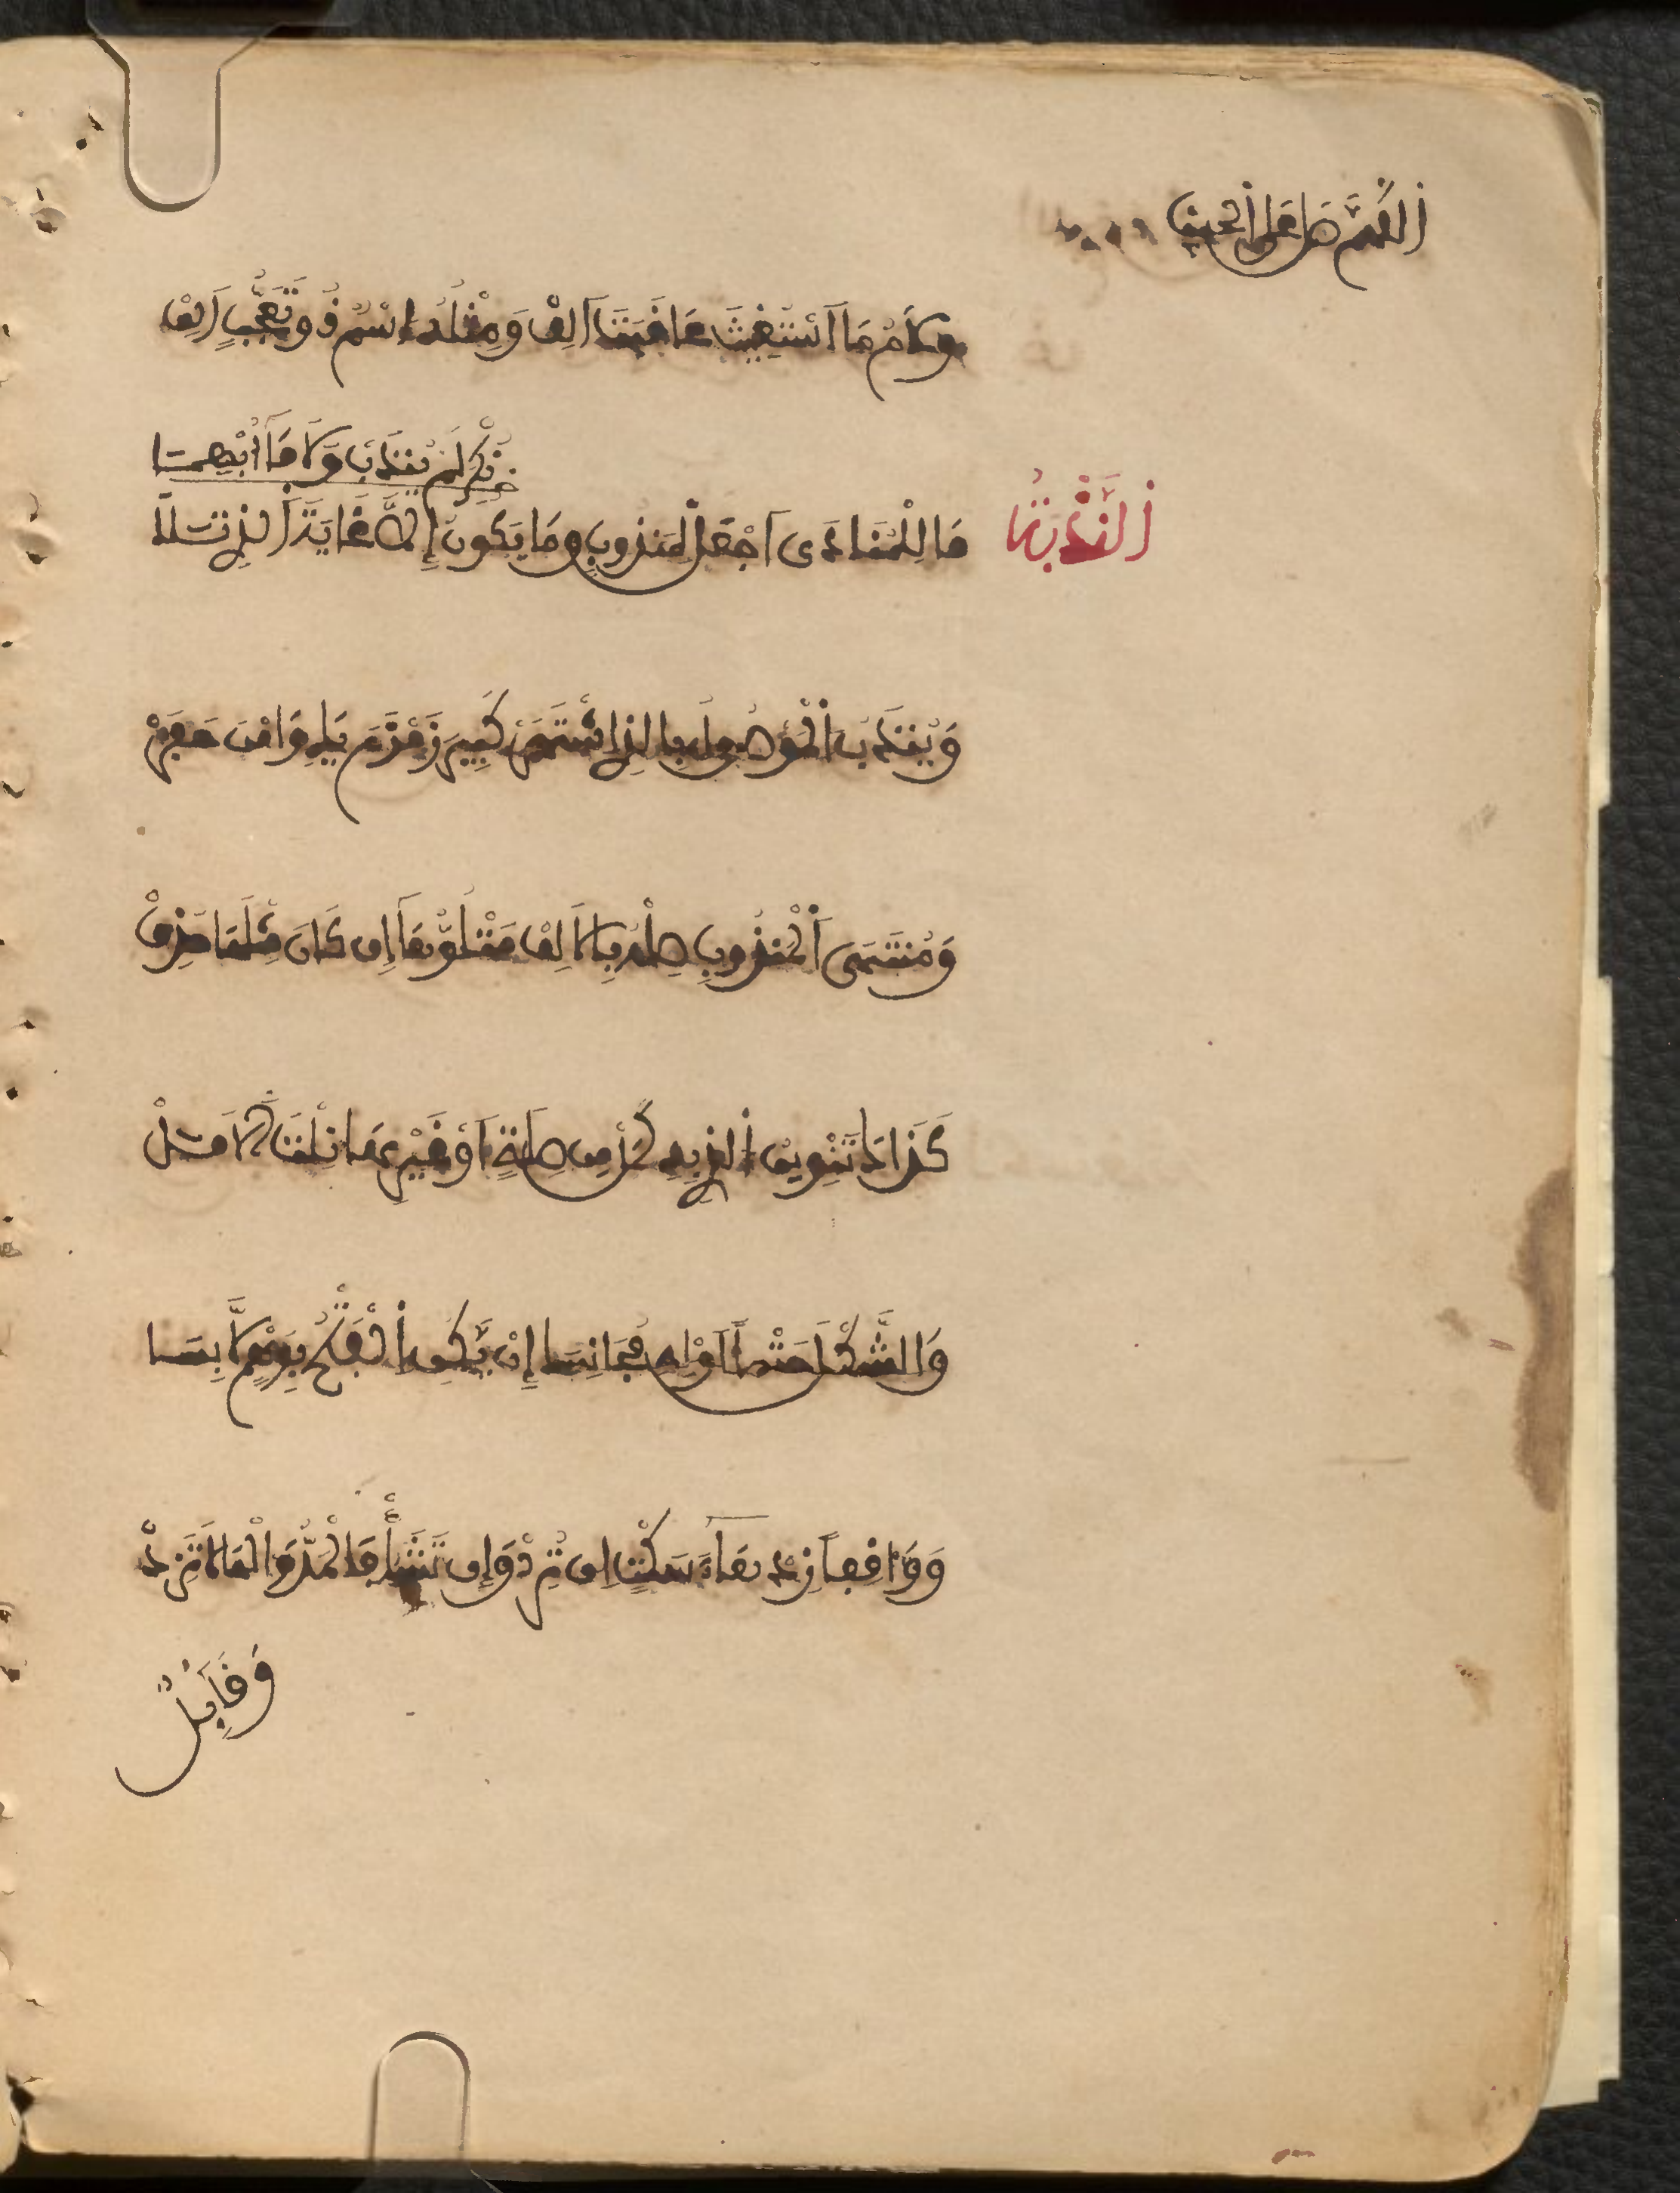 اللهم صل على الحبيب
ولام ما استغيث عاقبت الف ومثله اسم ذو تعجب الف
الندبة
نكر لم يندب ولا ما ابهما
ما للمنادى اجعل لمندوب وما
ويندب الموصول بالذي اشتهر كبير زمزم يلي وامن حفر
ومنتهى المندوب صله بالالف متلوها ان كان مثلها حذف
كذاك تنوين الذي به كمل من صلة او غيرها نلت الامل
والشكل حتما اوله مجانسا ان يكن الفتح بوهم لابسا
وواقفا زد هاء سكت ان ترد وان تشأ فالمد والها لا تزد
وقائل